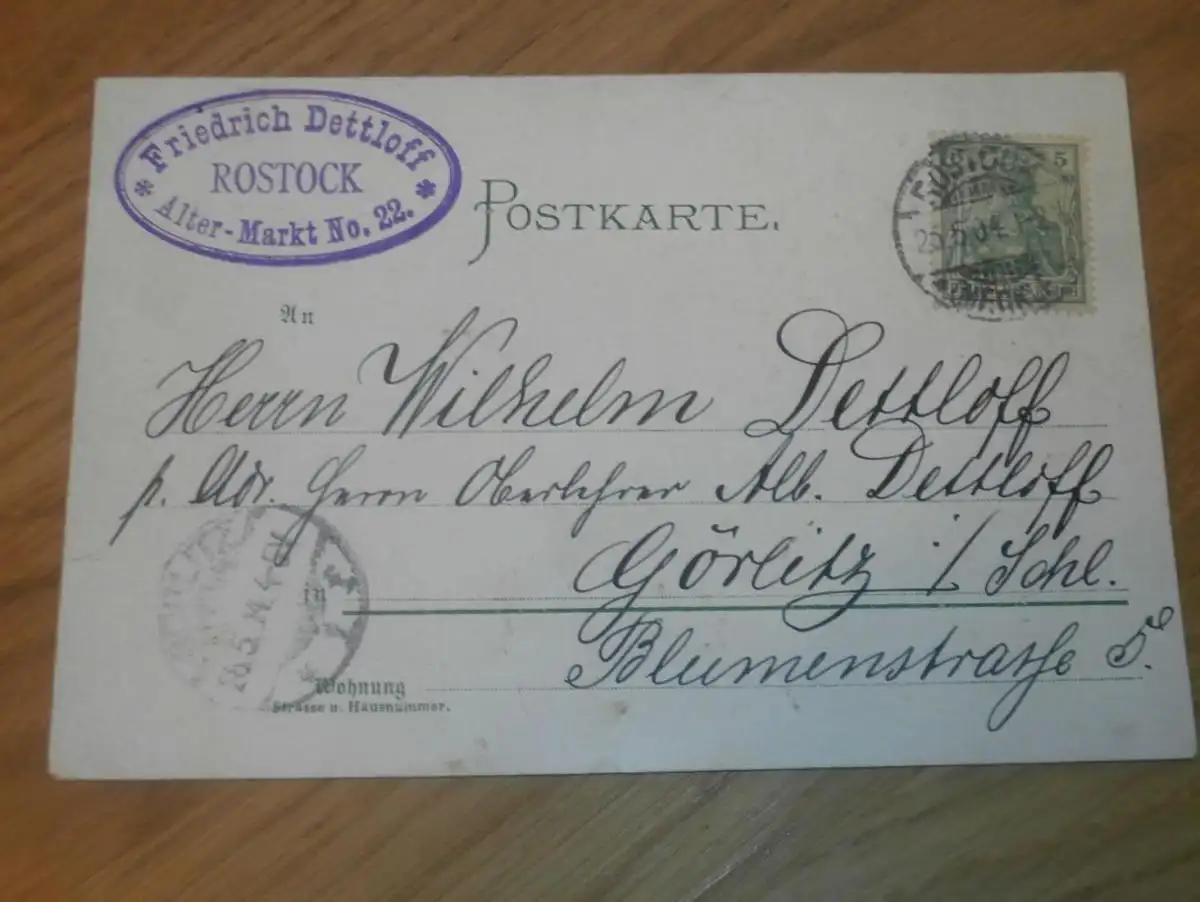 * Friedrich Dettloff *
ROSTOCK
Alter-Markt No. 22.
POSTKARTE.
5
25.5.04.
An
Herrn Wilhelm Dettloff
p. Adr. Herrn Oberlehrer Alb. Dettloff
Görlitz i/Schl.
in
Blumenstraße 5
Wohnung
Strasse u. Hausnummer.
26.5.